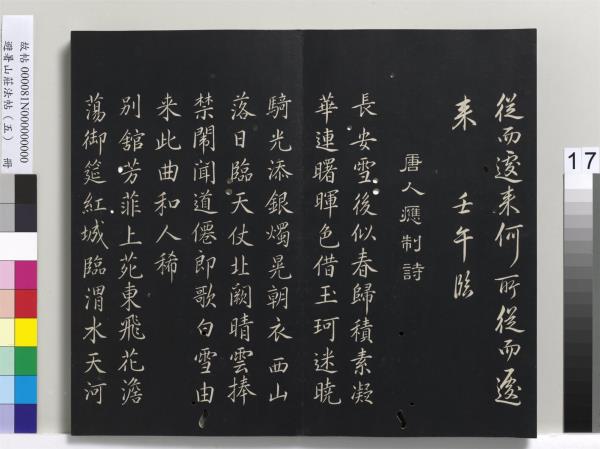 從而遽來何所從而遽
来 壬午臨
唐人應制詩
長安雪後似春歸積素凝
華連曙暉色借玉珂迷曉
騎光添銀燭晃朝衣西山
落日臨天仗北闕晴雲捧
禁闈聞道僊郎歌白雪由
来此曲和人稀
別舘芳菲上苑東飛花澹
蕩御筵紅城臨渭水天河
故帖000081N000000000
避暑山莊法帖(五) 冊
17